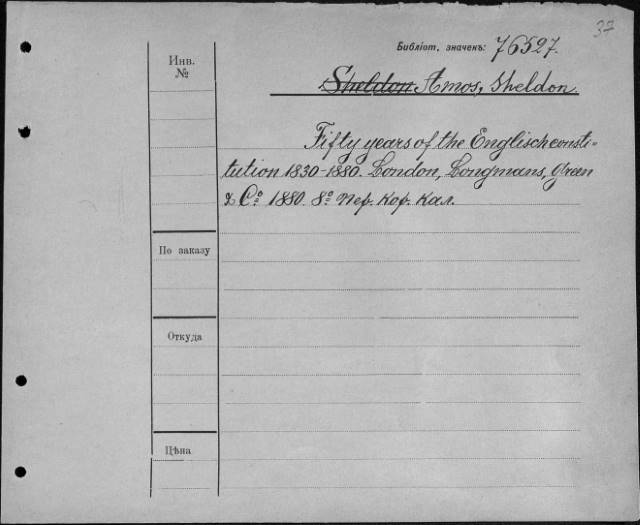 37
Библіот. значекъ: 76527.
Инв.
№
Sheldon Amos, Sheldon.
Fifty years of the Englisch consti-
tution 1830-1880. London, Longmans, Green
& Cº 1880. 8º Пер. Кор. Кал.
По заказу
Откуда
Цѣна